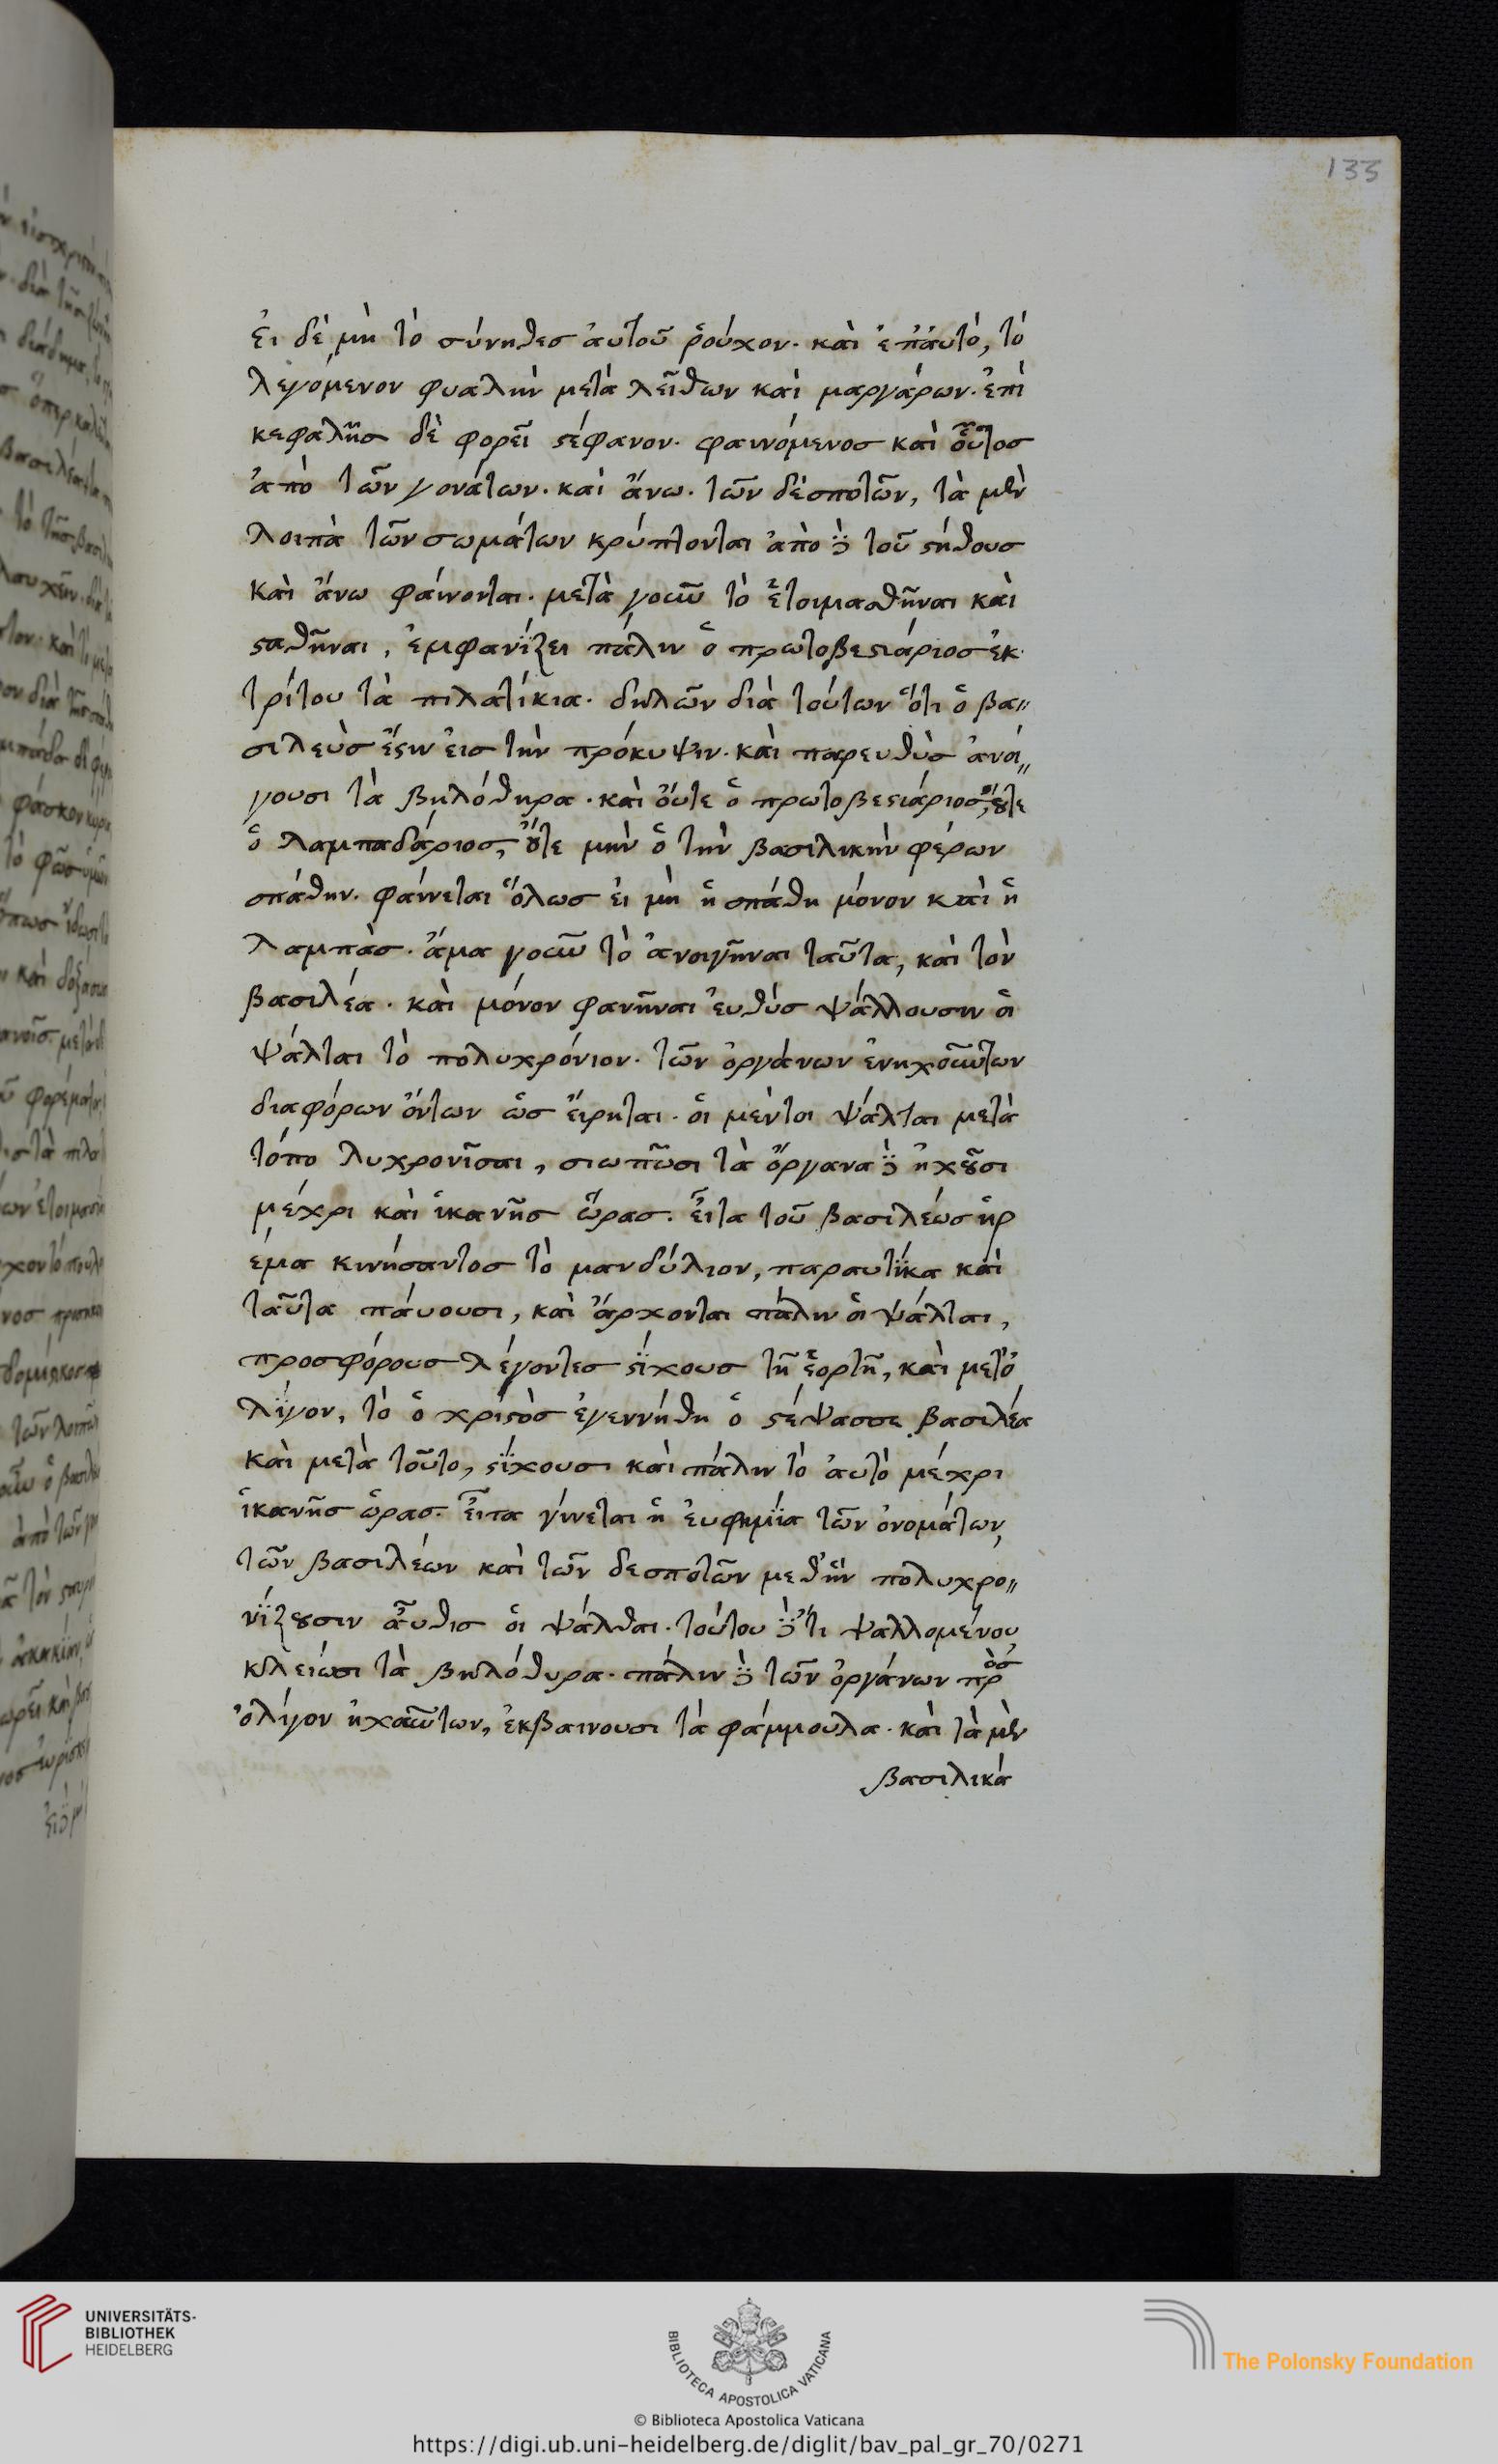 133
ἐι δὲ μὴ τὸ σύνηθεσ ἀυτοῦ ῥούχον· καὶ ἐπἀυτό, τὸ
λεγόμενον φυαλὴν μετὰ λεῖθων καὶ μαργάρων. ἐπὶ
κεφαλῆσ δὲ φορεῖ ϛέφανον· φαινόμενοσ καὶ οὗτοσ
ἀπὸ τῶν γονάτων· καὶ ἄνω· τῶν δὲσποτῶν, τὰ μὲν
λοιπὰ τῶν σωμάτων κρύπτονται ἀπὸ δὲ τοῦ ϛήθουσ
καὶ ἄνω φαίνονται· μετὰ γοῦν τὸ ἑτοιμασθῆναι καὶ
ϛαθῆναι, ἐμφανίζει πάλιν ὁ πρωτοβεϛιάριοσ ἐκ
τρίτου τὰ πιλατίκια· δηλῶν διὰ τούτων ὅτι ὁ βα〃
σιλεὺσ ἔϛιν ἐισ τὴν πρόκυψιν· καὶ παρευθὺσ ἀνοί〃
γουσι τὰ βηλόθηρα· καὶ ὄυτε ὁ πρωτοβεϛιάριοσ, ȣ̓́τε
ὁ λαμπαδάριοσ, ȣ̓́τε μὴν ὁ τὴν βασιλικὴν φέρων
σπάθην· φαίνεται ὅλωσ ἐι μὴ ἡ σπάθη μόνον καὶ ἡ
λαμπὰσ· ἅμα γοῦν τὸ ἀνοιγῆναι ταῦτα, καὶ τὸν
βασιλέα· καὶ μόνον φανῆναι ἐυθύσ ψάλλουσιν ὁι
ψάλται τὸ πολυχρόνιον· τῶν ὀργάνων ἐνηχούντων
διαφόρων ὄντων ὡσ ἔιρηται· ὁι μέντοι ψάλται μετὰ
τόπο λυχρονῖσαι, σιωπῶσι τὰ ὄργανα δὲ ἠχȣ͂σι
μέχρι καὶ ἱκανῆσ ὥρασ· εἶτα τοῦ βασιλέωσ ἠρ
έμα κινήσαντοσ τὸ μανδύλιον, παραυτίκα καὶ
ταῦτα πάυουσι, καὶ ἄρχονται πάλιν ὁι ψάλται,
προσφόρουσ λέγοντεσ ϛίχουσ τῇ ἑορτῇ, καὶ μετ' ὀ
λίγον, τὸ ὁ χριϛὸσ ἐγεννήθη ὁ ϛέψασσε βασιλέα
καὶ μετὰ τοῦτο, ϛίχουσι καὶ πάλιν τὸ ἀυτὸ μέχρι
ἱκανῆσ ὥρασ· εἶτα γίνεται ἡ ἐυφημία τῶν ὀνομάτων
τῶν βασιλέων καὶ τῶν δεσποτῶν μεθ' ἣν πολυχρο〃
νίζȣσιν ἆυθισ ὁι ψάλθαι· τούτου δὲ ἔτι ψαλλομένου
κλειώσι τὰ βηλόθυρα· πάλιν δὲ τῶν ὀργάνων πρὸσ
ὀλίγον ἠχούντων, ἐκβαινουσι τὰ φάμμουλα· καὶ τὰ μὲν
βασιλικά
UNIVERSITÄTS-
BIBLIOTHEK
HEIDELBERG
BIBLIOTECA APOSTOLICA VATICANA
The Polonsky Foundation
© Biblioteca Apostolica Vaticana
https://digi.ub.uni-heidelberg.de/diglit/bav_pal_gr_70/0271